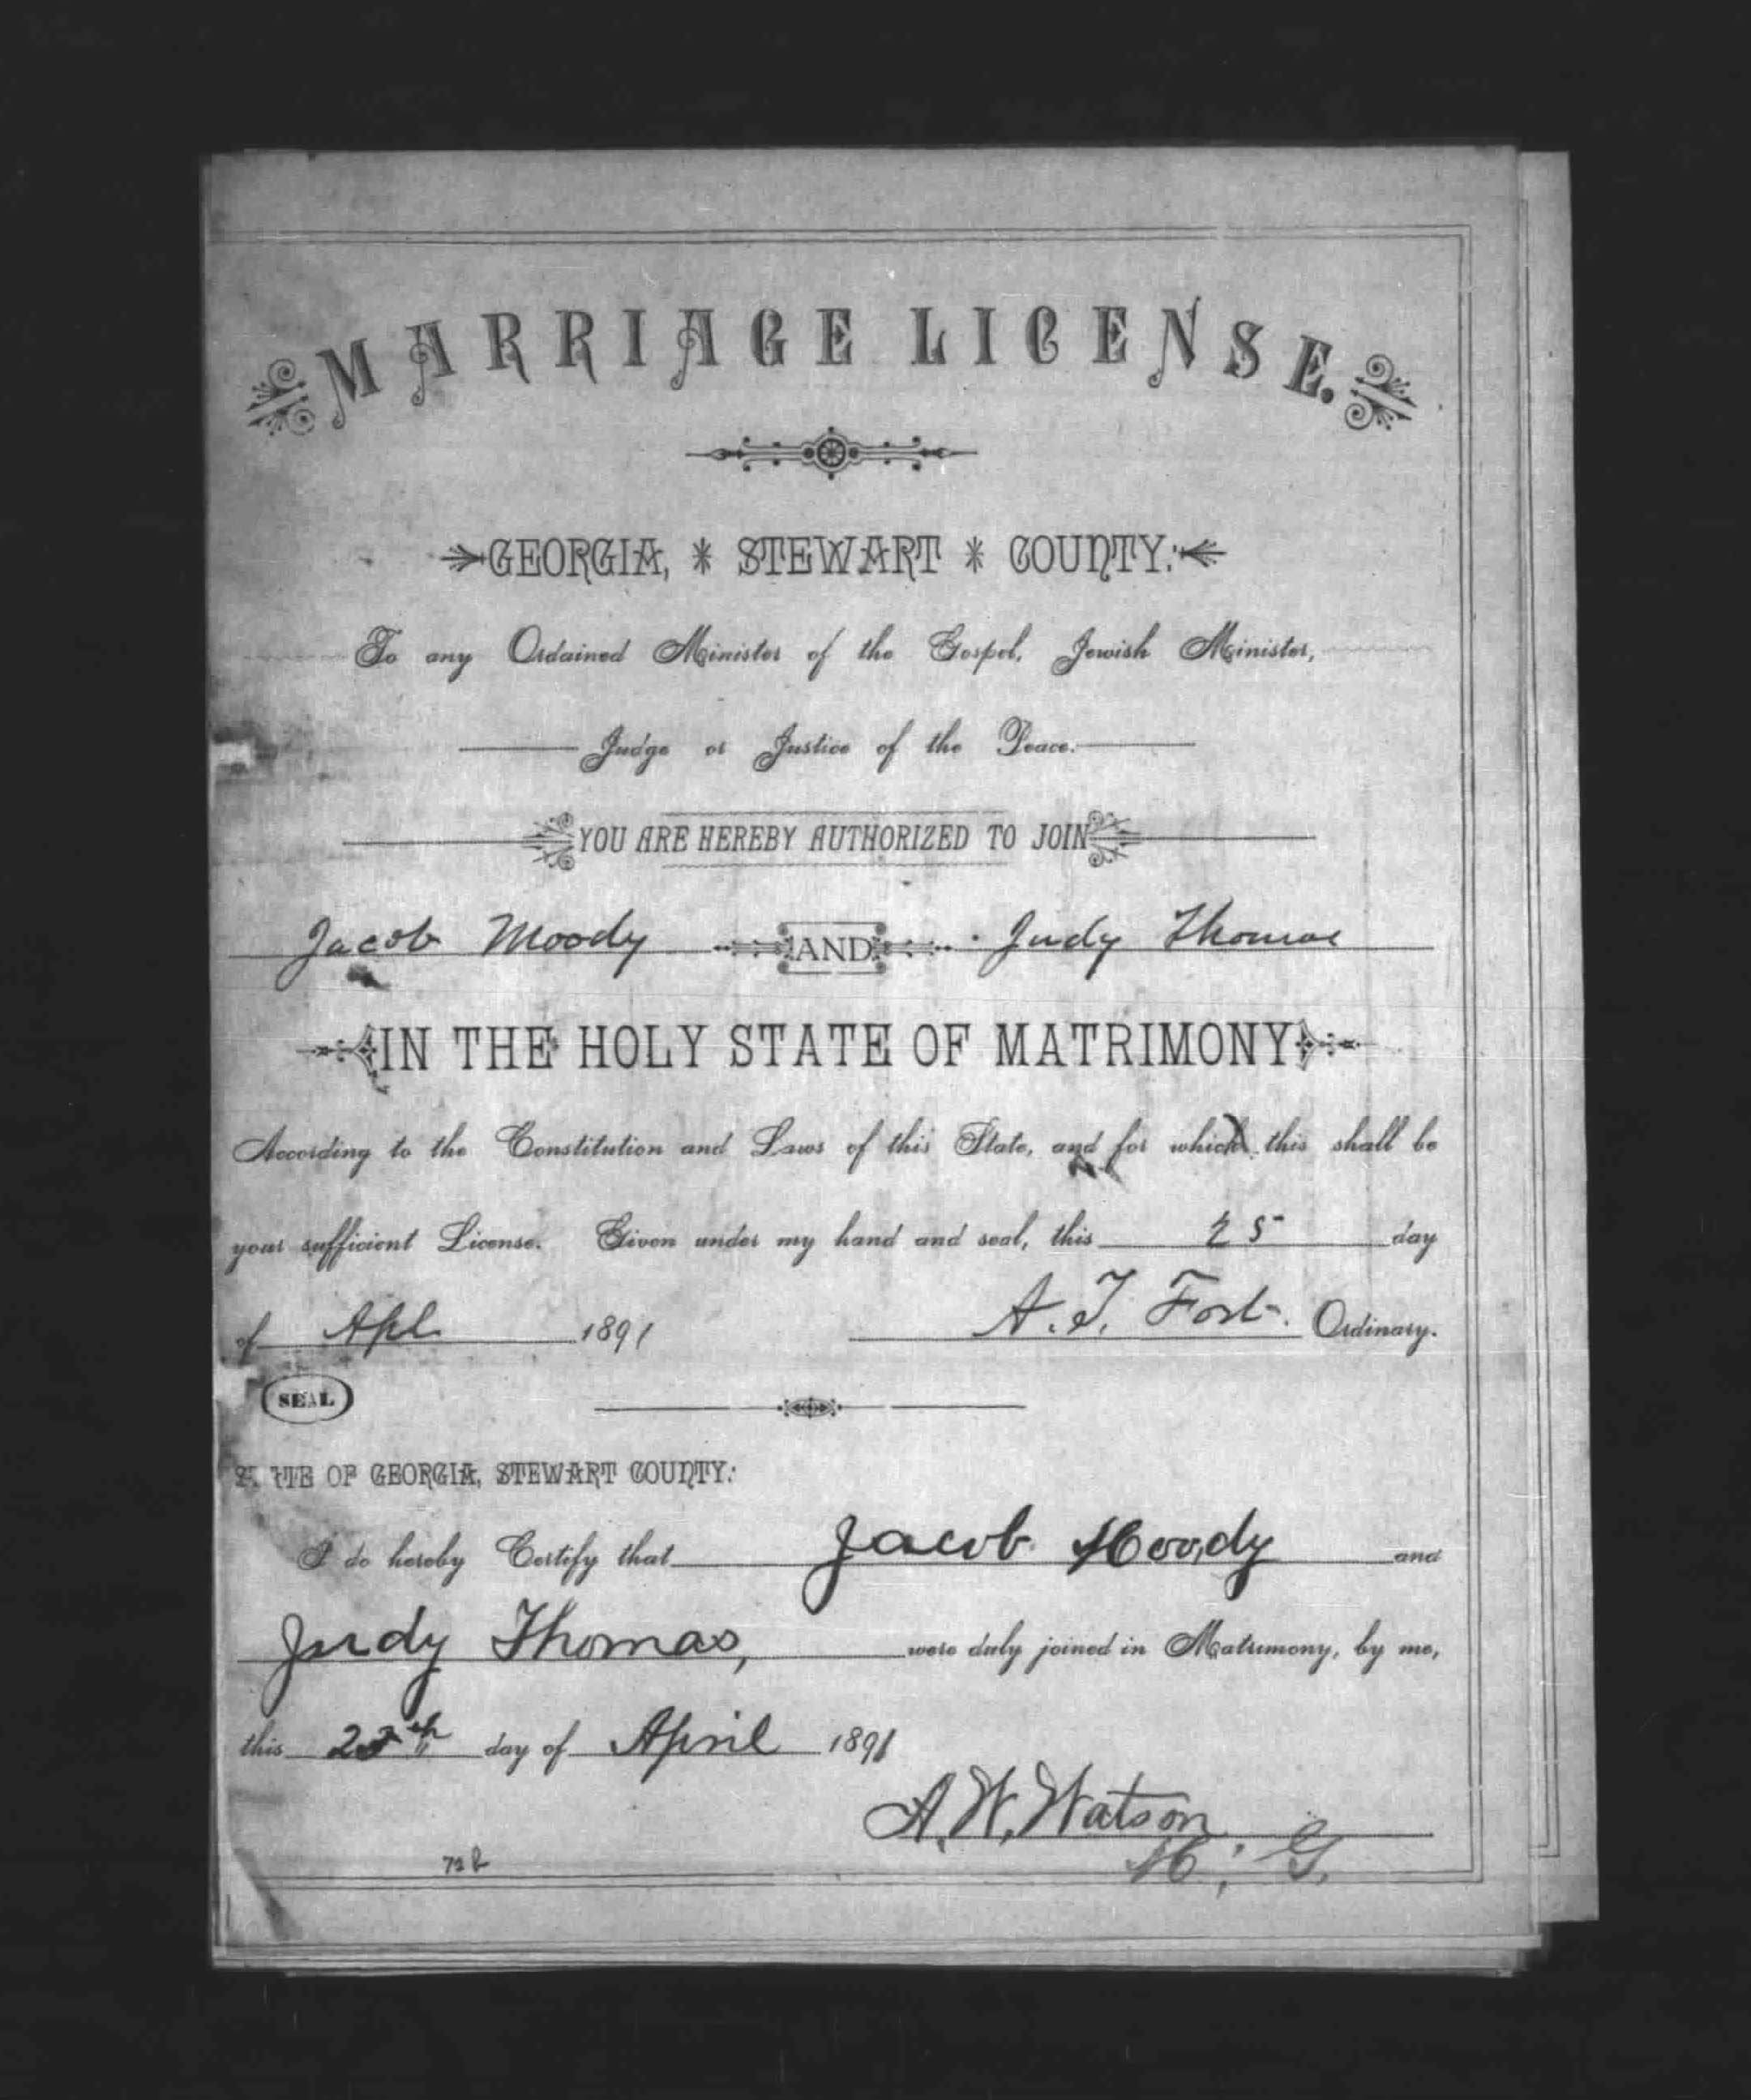 MARRIAGE LICENSE.
GEORGIA, * STEWART * COUNTY:
To any Ordained Minister of the Gospel, Jewish Minister,
Judge or Justice of the Peace.
YOU ARE HEREBY AUTHORIZED TO JOIN
Jacob Moody AND Judy Thomas
IN THE HOLY STATE OF MATRIMONY
According to the Constitution and Laws of this State, and for which this shall be
your sufficient License. Given under my hand and seal, this 25 day
of Apl 1891 A. T. Fort. Ordinary.
SEAL
STATE OF GEORGIA, STEWART COUNTY:
I do hereby Certify that Jacob Moody and
Judy Thomas, were duly joined in Matrimony, by me,
this day of April 1891
A. W. Watson
M. G.